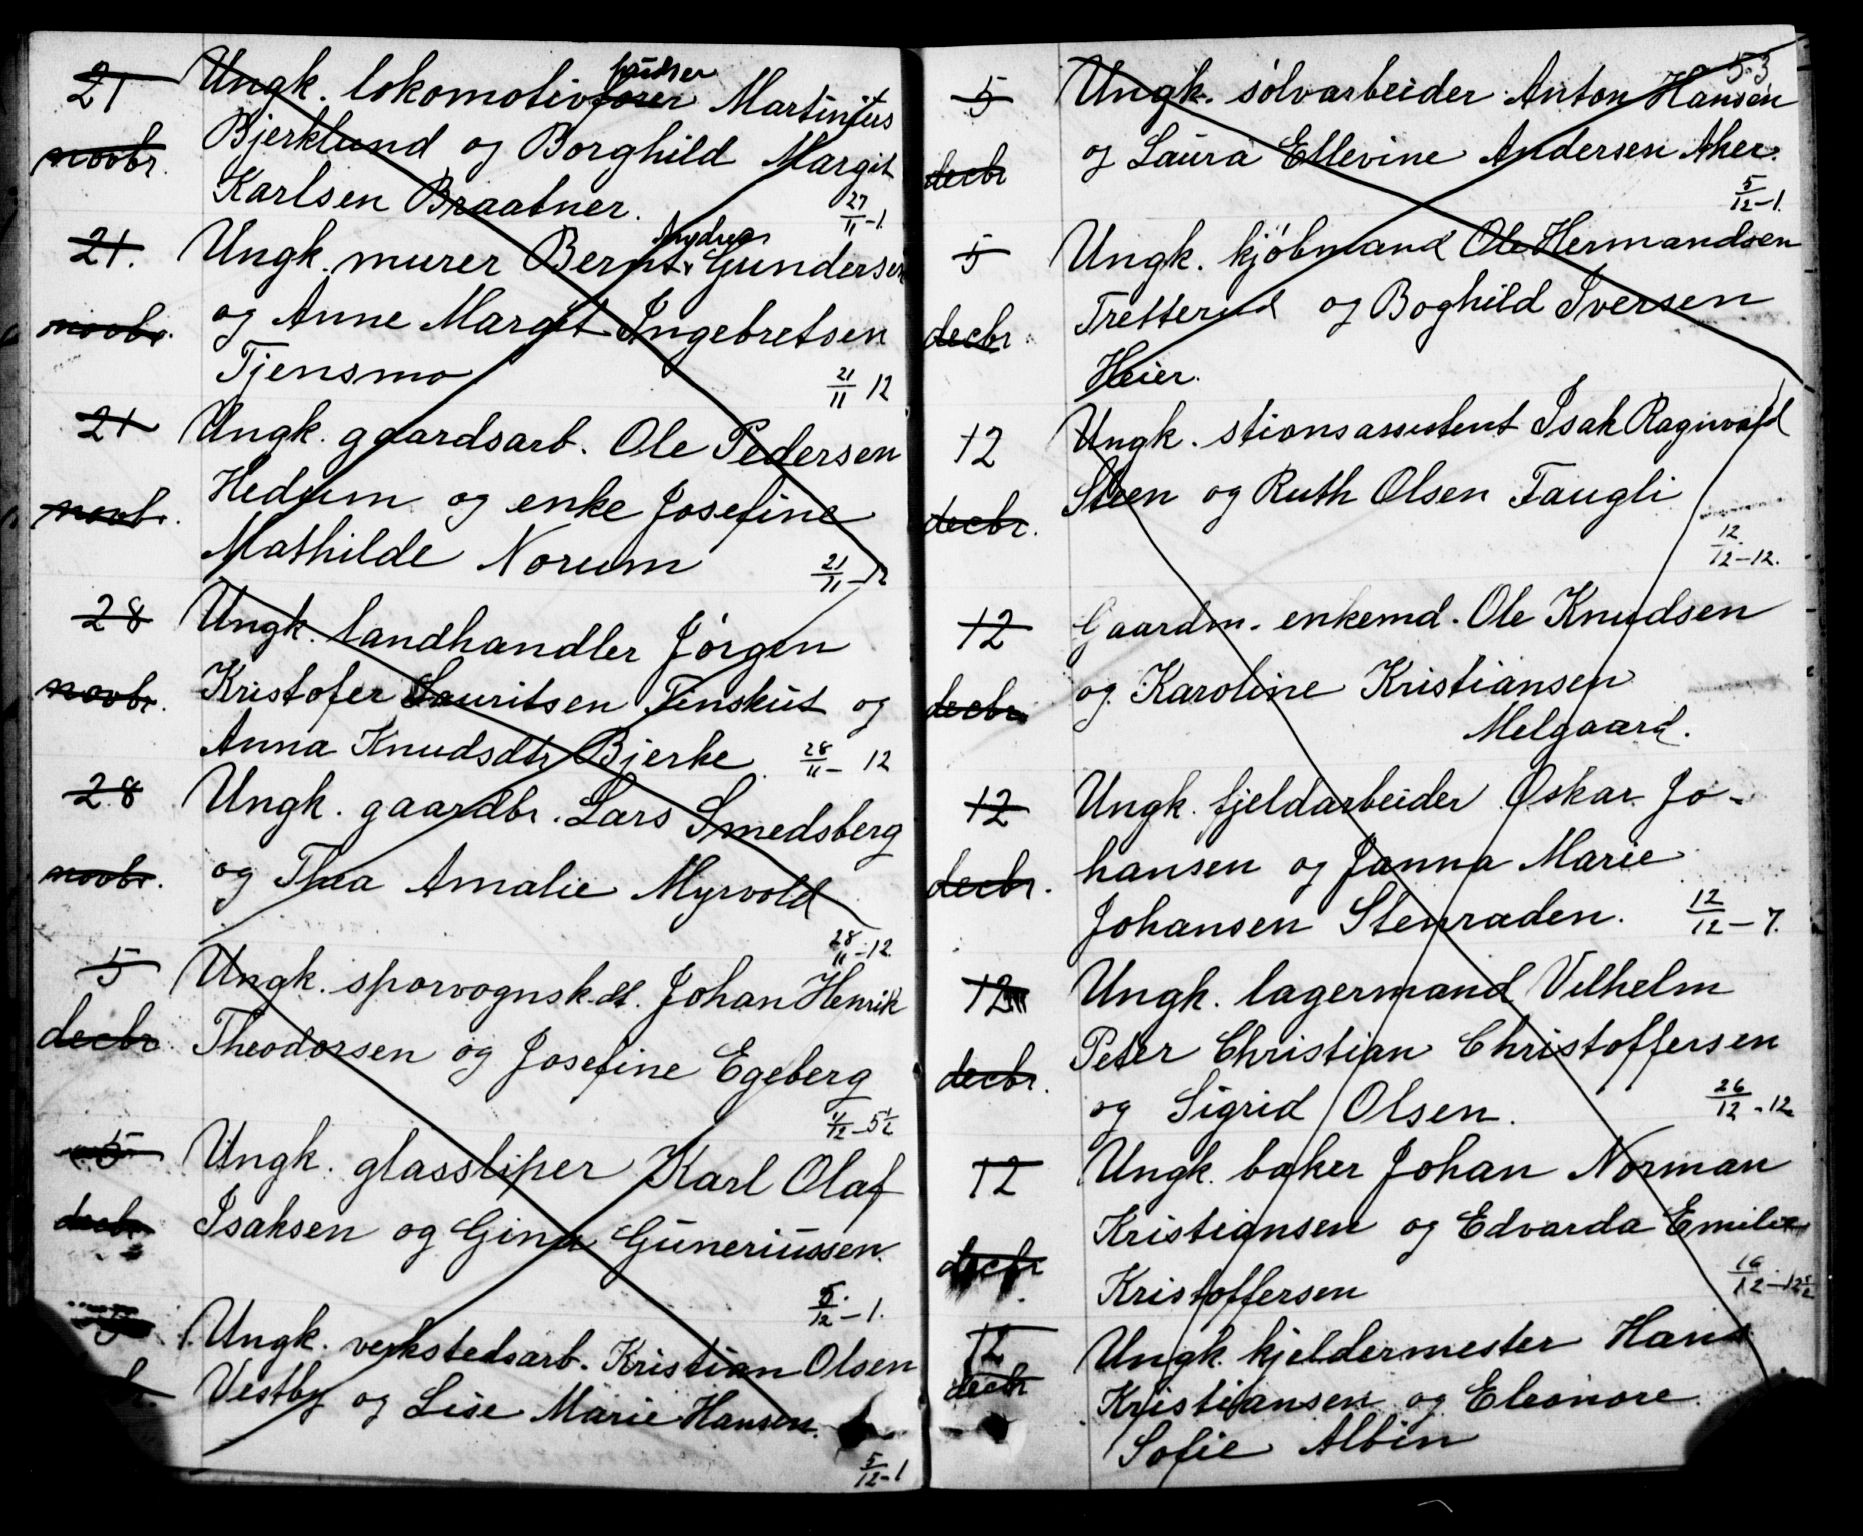 21 Ungk. lokomotivfører pudser Martinius
novbr. Bjerklund og Borghild Margit
Karlsen Braatner. 27/11-1
21. Ungk. murer Bernt Andreas Gundersen
novbr. og Anne Margit Ingebretsen
Tjensmo 21/11 12
21 Ungk. gaardsarb. Ole Pedersen
novbr. Hedum og enke Josefine
Mathilde Norum 21/11-12
28 Ungk. landhandler Jörgen
novbr. Kristofer Lauritsen Finskut og
Anna Knudsdtr Bjerke 28/11- 12
28 Ungk. gaardbr. Lars Smedsberg
novbr. og Thea Amalie Myrvold
28/11-12
5 Ungk. sporvognskdt. Johan Henrik
decbr. Theodorsen og Josefine Egeberg
4/12-5½
5 Ungk. glassliper Karl Olaf
decbr. Isaksen og Gina Guneriussen.
5/12-1.
Ungk. verkstedsarb. Kristian Olsen
Vestby og Lise Marie Hansen.
5/12-1
5-3
5 Ungk. sölvarbeider Anton Hansen
decbr og Laura Ellevine Andersen Aker.
5/12-1.
5 Ungk. kjöbmand Ole Hermandsen
decbr. Tretterud og Boghild Iversen
Heier.
12 Ungk. stionsassistent Isak Ragnvald
decbr. Steen og Ruth Olsen Faugli
12/12-12.
12 Gaardm. enkemd. Ole Knudsen
decbr. og Karoline Kristiansen
Melgaard.
12 Ungk. fjeldarbeider Oskar Jo-
decbr. hansen og Janna Marie
Johansen Stenraden. 12/12-7.
12 Ungk. lagermand Vilhelm
decbr. Peter Christian Christoffersen
og Sigrid Olsen. 26/12-12
12 Ungk. baker Johan Norman
decbr Kristiansen og Edvarda Emilie
Kristoffersen 16/12-12½
12 Ungk. kjeldermester Hans
decbr Kristiansen og Eleonore
Sofie Albin